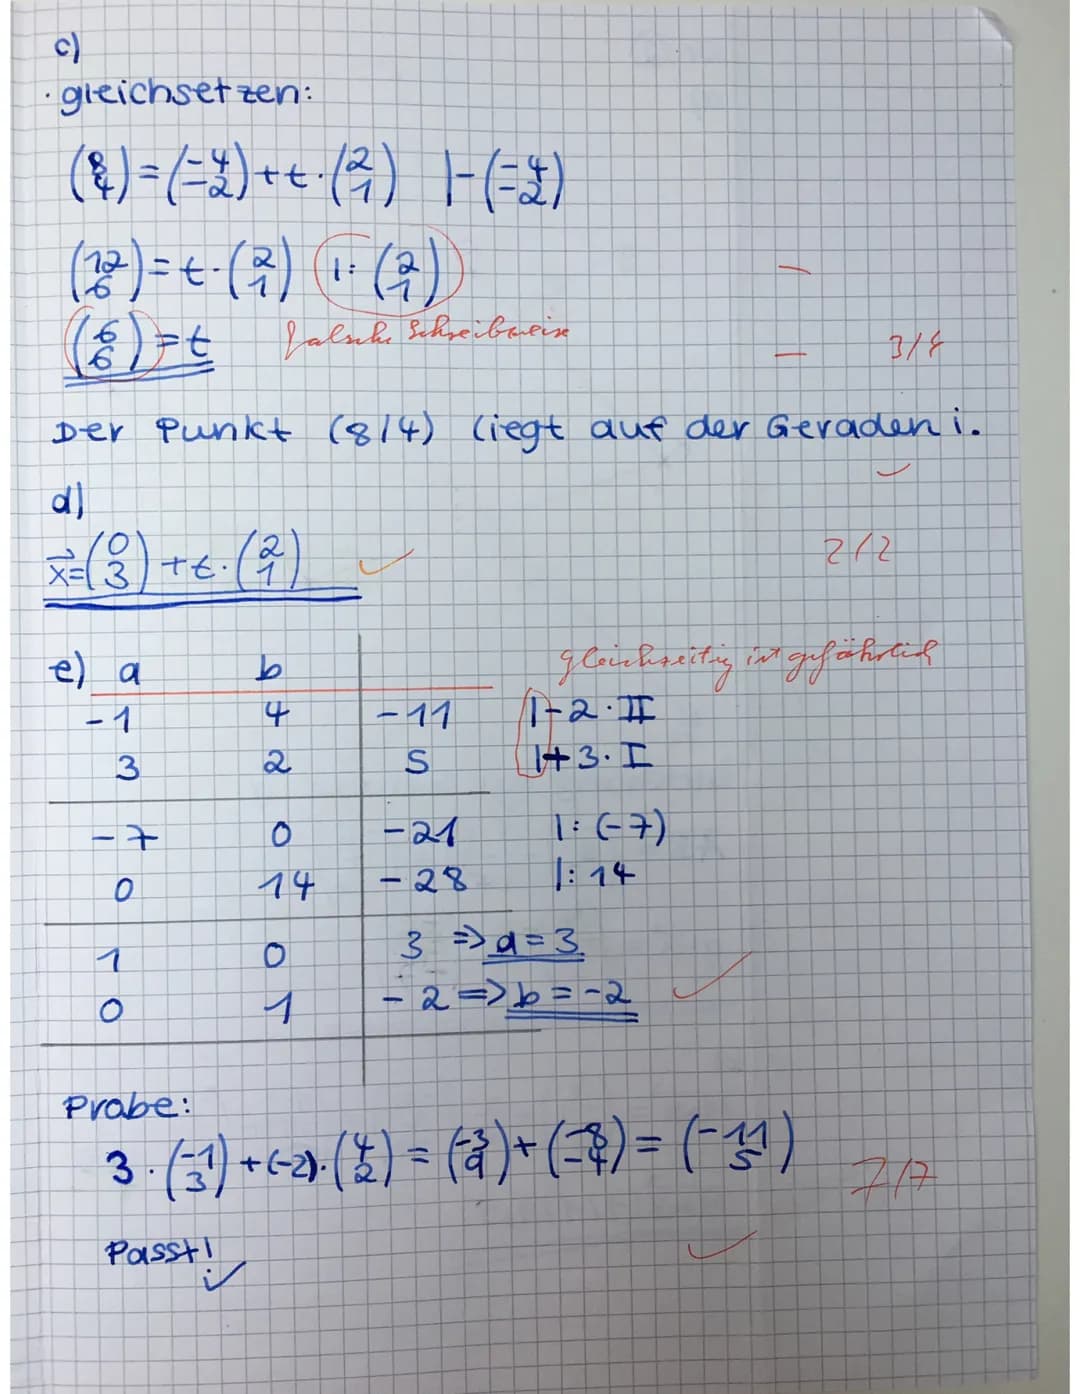 c)
· gleichsetzen:
(8 4) = (-4 -2) + t · (2 1) |- (-4 -2)
(12 6) = t · (2 1) |: (2 1) -
(6 6) = t falsche Schreibweise - 3/4
Der Punkt (8/4) liegt auf der Geraden i.
d)
x⃗ = (0 3) + t · (2 1) ✓ 2/2
gleichzeitig ist gefährlich
e) a b
-1 4 -11 |-2 · II
3 2 5 |+3 · I
-7 0 -21 |: (-7)
0 14 -28 |: 14
1 0 3 => a = 3
0 1 -2 => b = -2 ✓
Probe:
3 · (-1 3) + (-2) · (4 2) = (-3 9) + (-8 -4) = (-11 5)
7/7
Passt! ✓